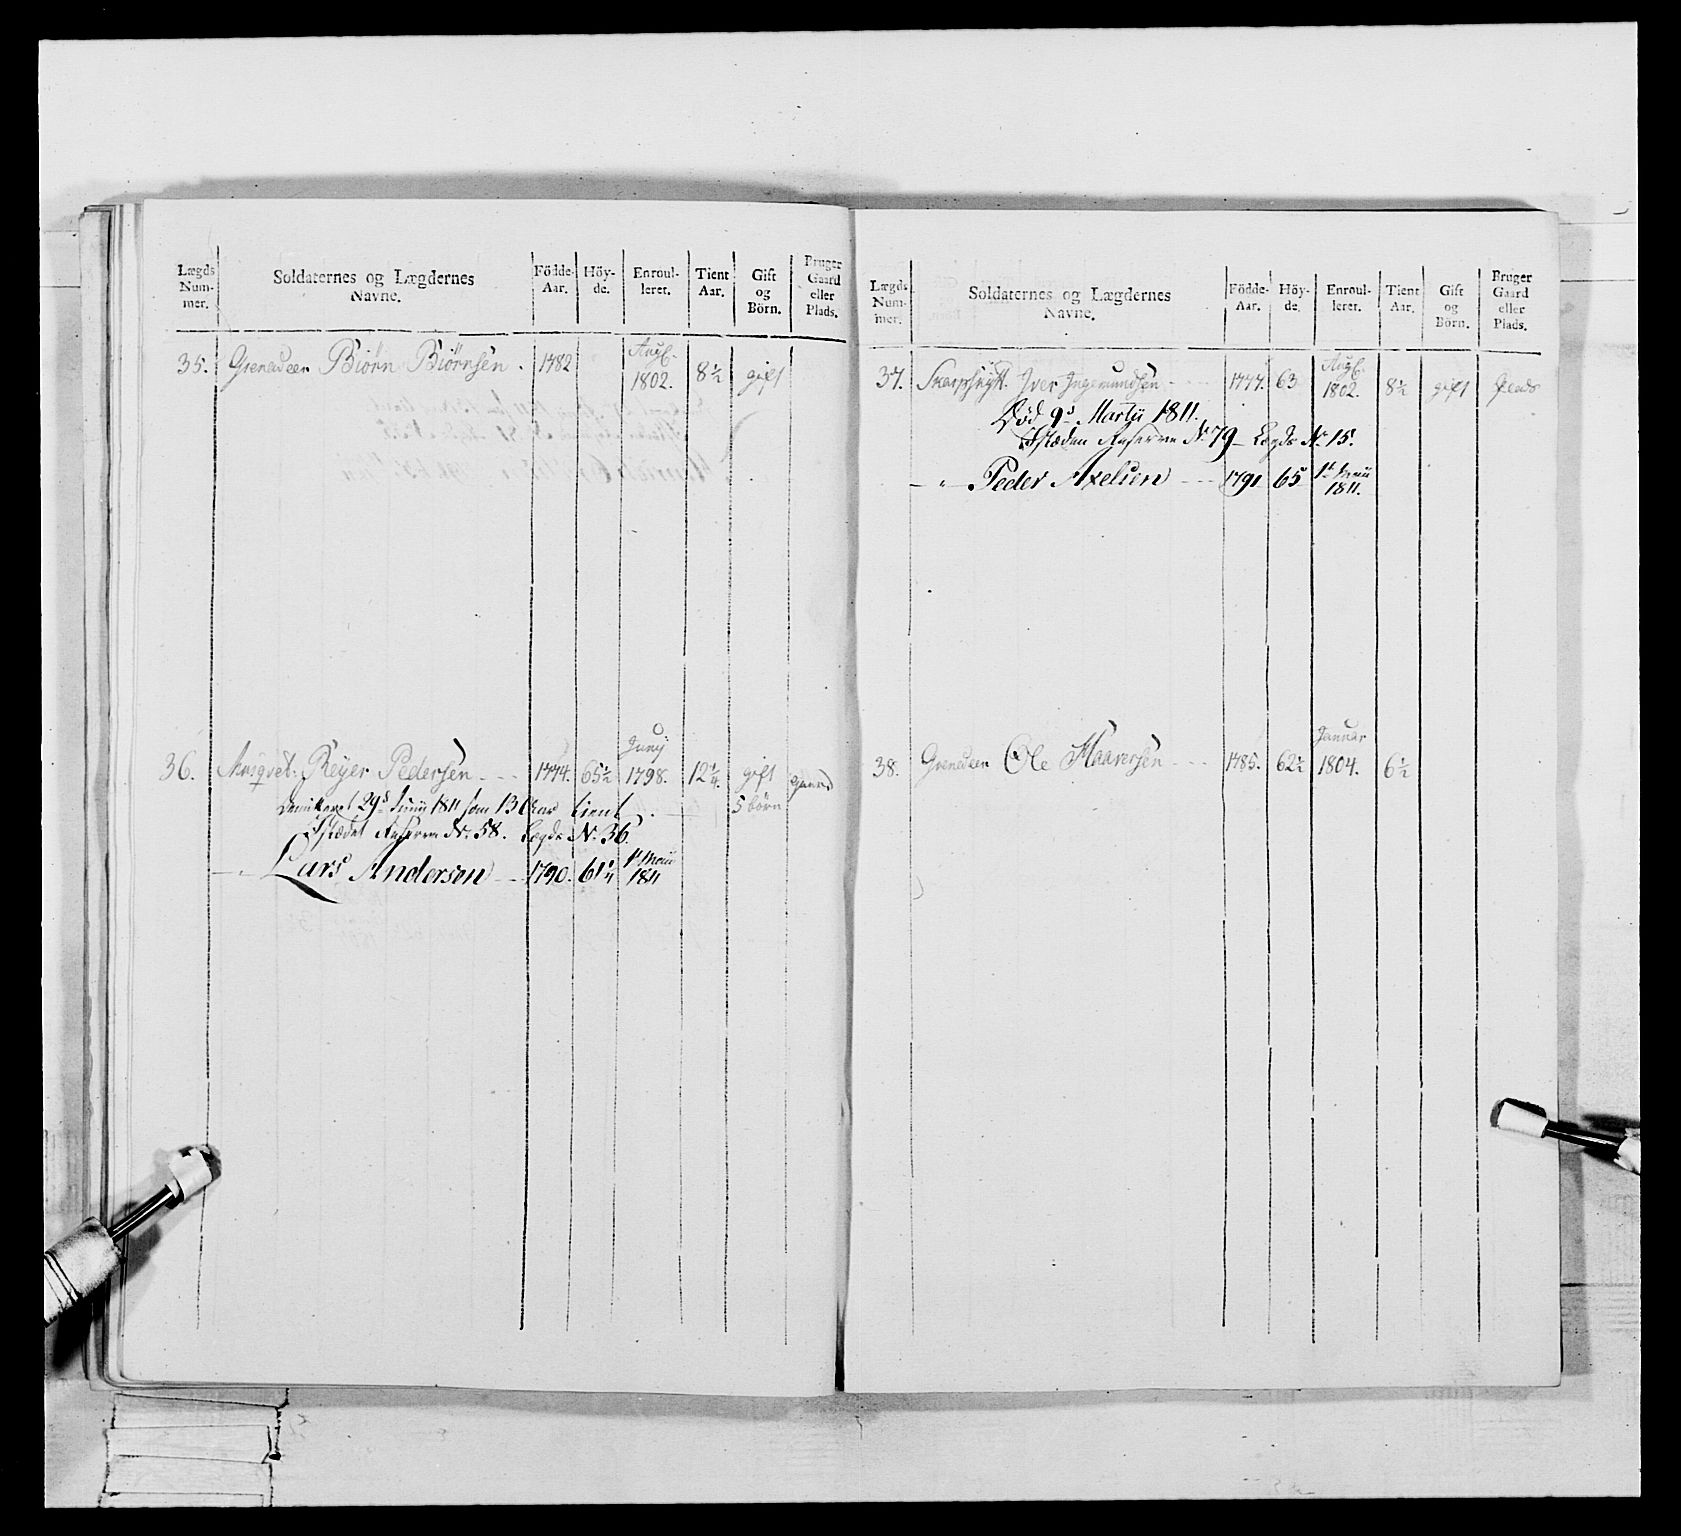 Lægds Num- mer. Soldaternes og Lægdernes Navne. Födde- Aar. Höy- de. Enroul- leret. Tient Aar. Gift og Börn. Bruger Gaard eller Plads.
35. Grenadeer Biörn Biörnsen. 1782 Augt. 1802. 8½ gift
36. Musqvet. Reyer Pedersen 1774. 65½ Junij 1798. 12¼ gift 5 börn Gaard
Demitteret 29d Junij 1811 som 13 Aar tient
Istædet Reserve Nr. 58. Lægds Nr. 36.
— " — Lars Andersen 1790. 61¼ 1t Maii 1811
Lægds Num- mer. Soldaternes og Lægdernes Navne. Födde- Aar. Höy- de. Enroul- leret. Tient Aar. Gift og Börn. Bruger Gaard eller Plads.
37. Skarpskytt. Iver Ingemundsen 1777. 63 Augt. 1802. 8½ gift Plads
Död 9d Martij 1811.
Istæden Reserve Nr. 79 Lægds Nr. 15.
— " — Peder Axelsen 1791 65 1t Maii 1811.
38. Grenadeer Ole Haaversen 1785. 62½ Januar 1804. 6½